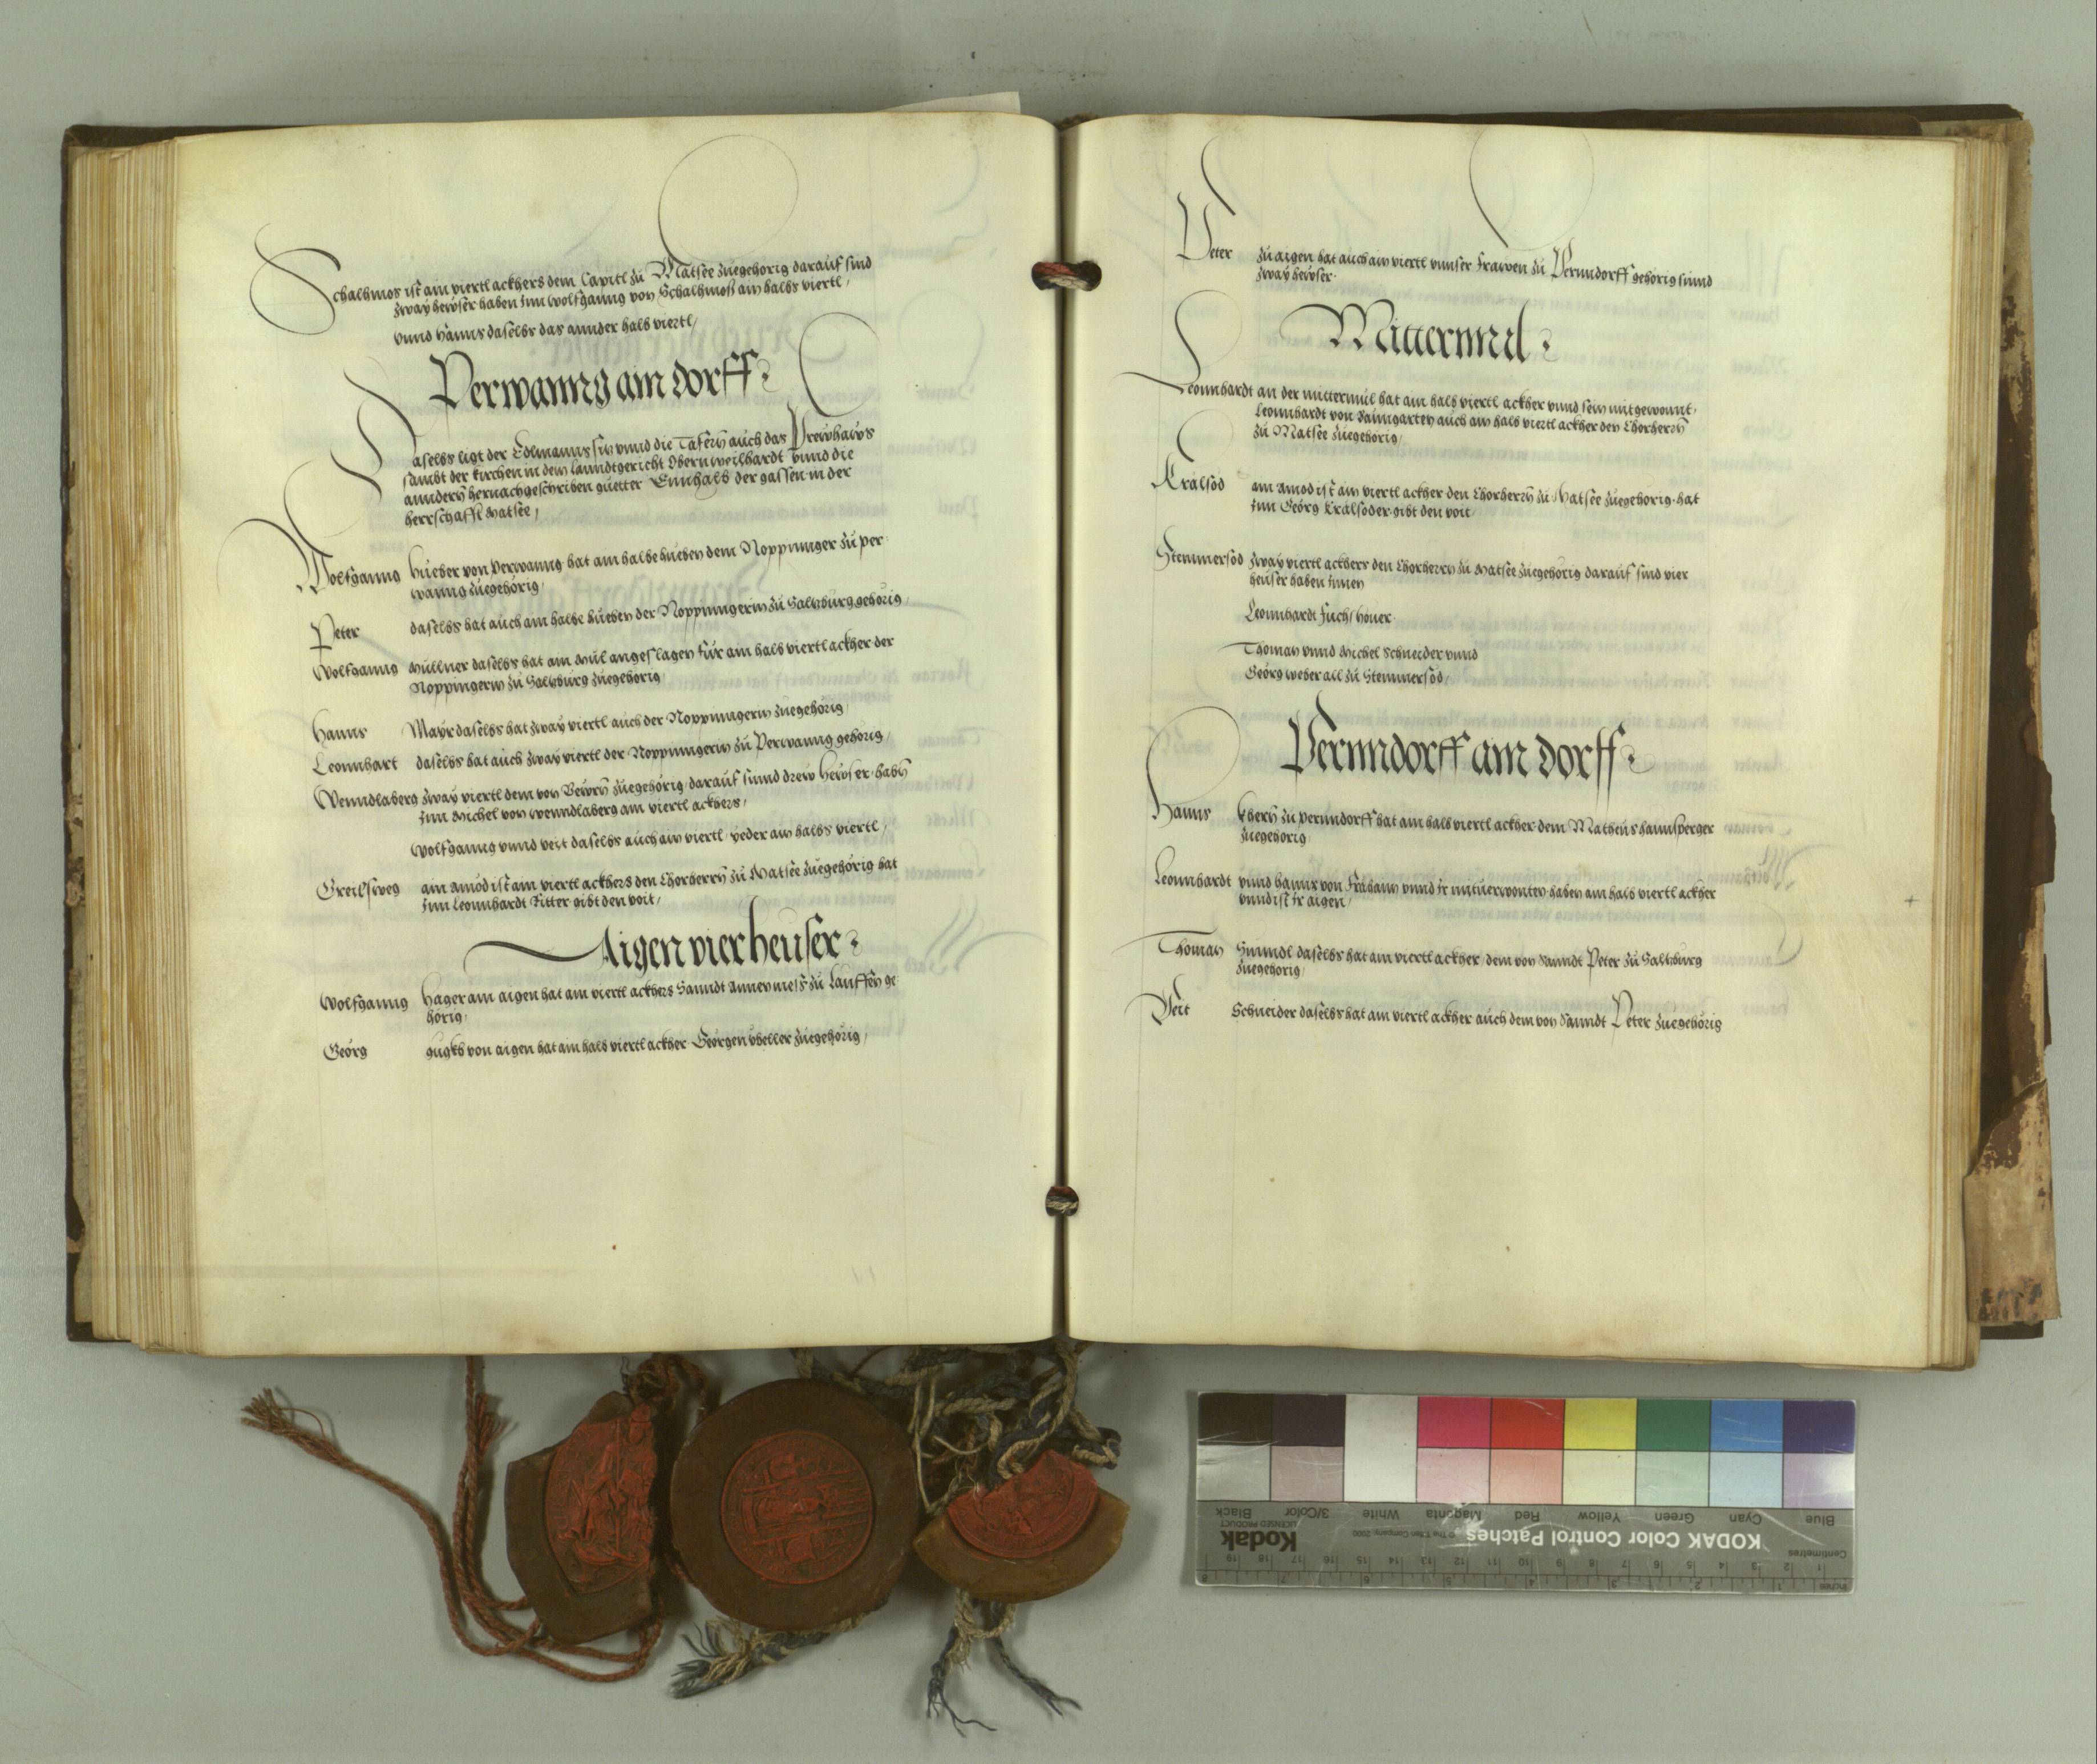 Schalhmos ist ain viertl ackhers dem Capitl zu Matsee zuegehorig darauf sind
zway hewser haben Inn Wolfganng von Schalhmoß ain halbs viertl,
vnnd Hanns daselbs das annder halb viertl,
Perwanng am dorff
Daselbs ligt der Edlmanns sitz vnnd die Tafern auch das Prewhaws
sambt der kirchen in dem lanndtgericht Obernweilhardt vnnd die
anndern hernachgeschriben guetter Ennhalb der gassen in der
herrschafft Matsee,
Wolfganng hueber von Perwanng hat ain halbe hueben dem Noppinnger zu per-
wanng zuegehörig,
Peter daselbs hat auch ain halbe hueben der Noppingerin zu Saltzburg gehörig,
Wolfganng Müllner daselbs hat ain Mül angeslagen für ain halb viertl ackher der
Noppingerin zu Saltzburg zuegehörig,
Hanns Mayr daselbs hat zway viertl auch der Noppingerin zuegehörig,
Leonnhart daselbs hat auch zway viertl der Noppingerin zu Perwanng gehörig,
Wenndlaberg zway viertl dem von Bewrn zuegehörig darauf sinnd drew hewser habn
Inn Michel von Wenndlaberg ain viertl ackhers,
Wolfganng vnnd Veit daselbs auch ain viertl yeder ain halbs viertl,
Greilsweg ain Amöd ist ain viertl ackhers den Chorherrn zu Matsee zuegehörig hat
Inn Leonnhardt Ritter gibt den voit,
Aigen vier heuser
Wolfganng hager am aigen hat ain viertl ackhers Sanndt Annen mess zu Lauffen ge
hörig,
Geörg gugkh von aigen hat ain halb viertl ackher Geörgen zuegehörig,
Peter zu aigen hat auch ain viertl vnnser frawen zu Pernndorff gehörig sinnd
zway hewser
Mittermul
Leonnhardt an der mittermül hat ain halb viertl ackher vnnd sein mitgewonnt,
Leonnhardt von Paumgarten auch ain halb viertl ackher den Chorherrn
zu Matsee zuegehörig,
Kralsöd ain Amöd ist ain viertl ackher den Chorherrn zu Matsee zuegehörig hat
Inn Geörg Kralsöder gibt den voit,
Stemmersöd zway viertl ackhers den Chorherrn zu Matsee zuegehörig darauf sind vier
heuser haben Innen
Leonnhardt Fuchshouer
Thoman vnnd Michel Schneider vnnd
Geörg weber all zu Stemmersöd,
Pernndorff am dorff
Hanns zu perndorff hat ain halb viertl ackher dem Matheus haunsperger
zuegehörig
Leonnhardt vnnd hanns von vnnd Ir mituerwonten haben ain halb viertl ackher
vnnd ist Ir aigen,
Thoman daselbs hat ain viertl ackher dem von Sanndt Peter zu Saltzburg
zuegehörig,
Veit Schneider daselbs hat ain viertl ackher auch dem von Sanndt Peter zuegehörig
KODAK Color Control Patches
© The Tiffen Company, 2000
Kodak
LICENSED PRODUCT
Blue Cyan Green Yellow Red Magenta White 3/Color Black
Centimetres
Inches
1 2 3 4 5 6 7 8 9 10 11 12 13 14 15 16 17 18 19
1 2 3 4 5 6 7 8